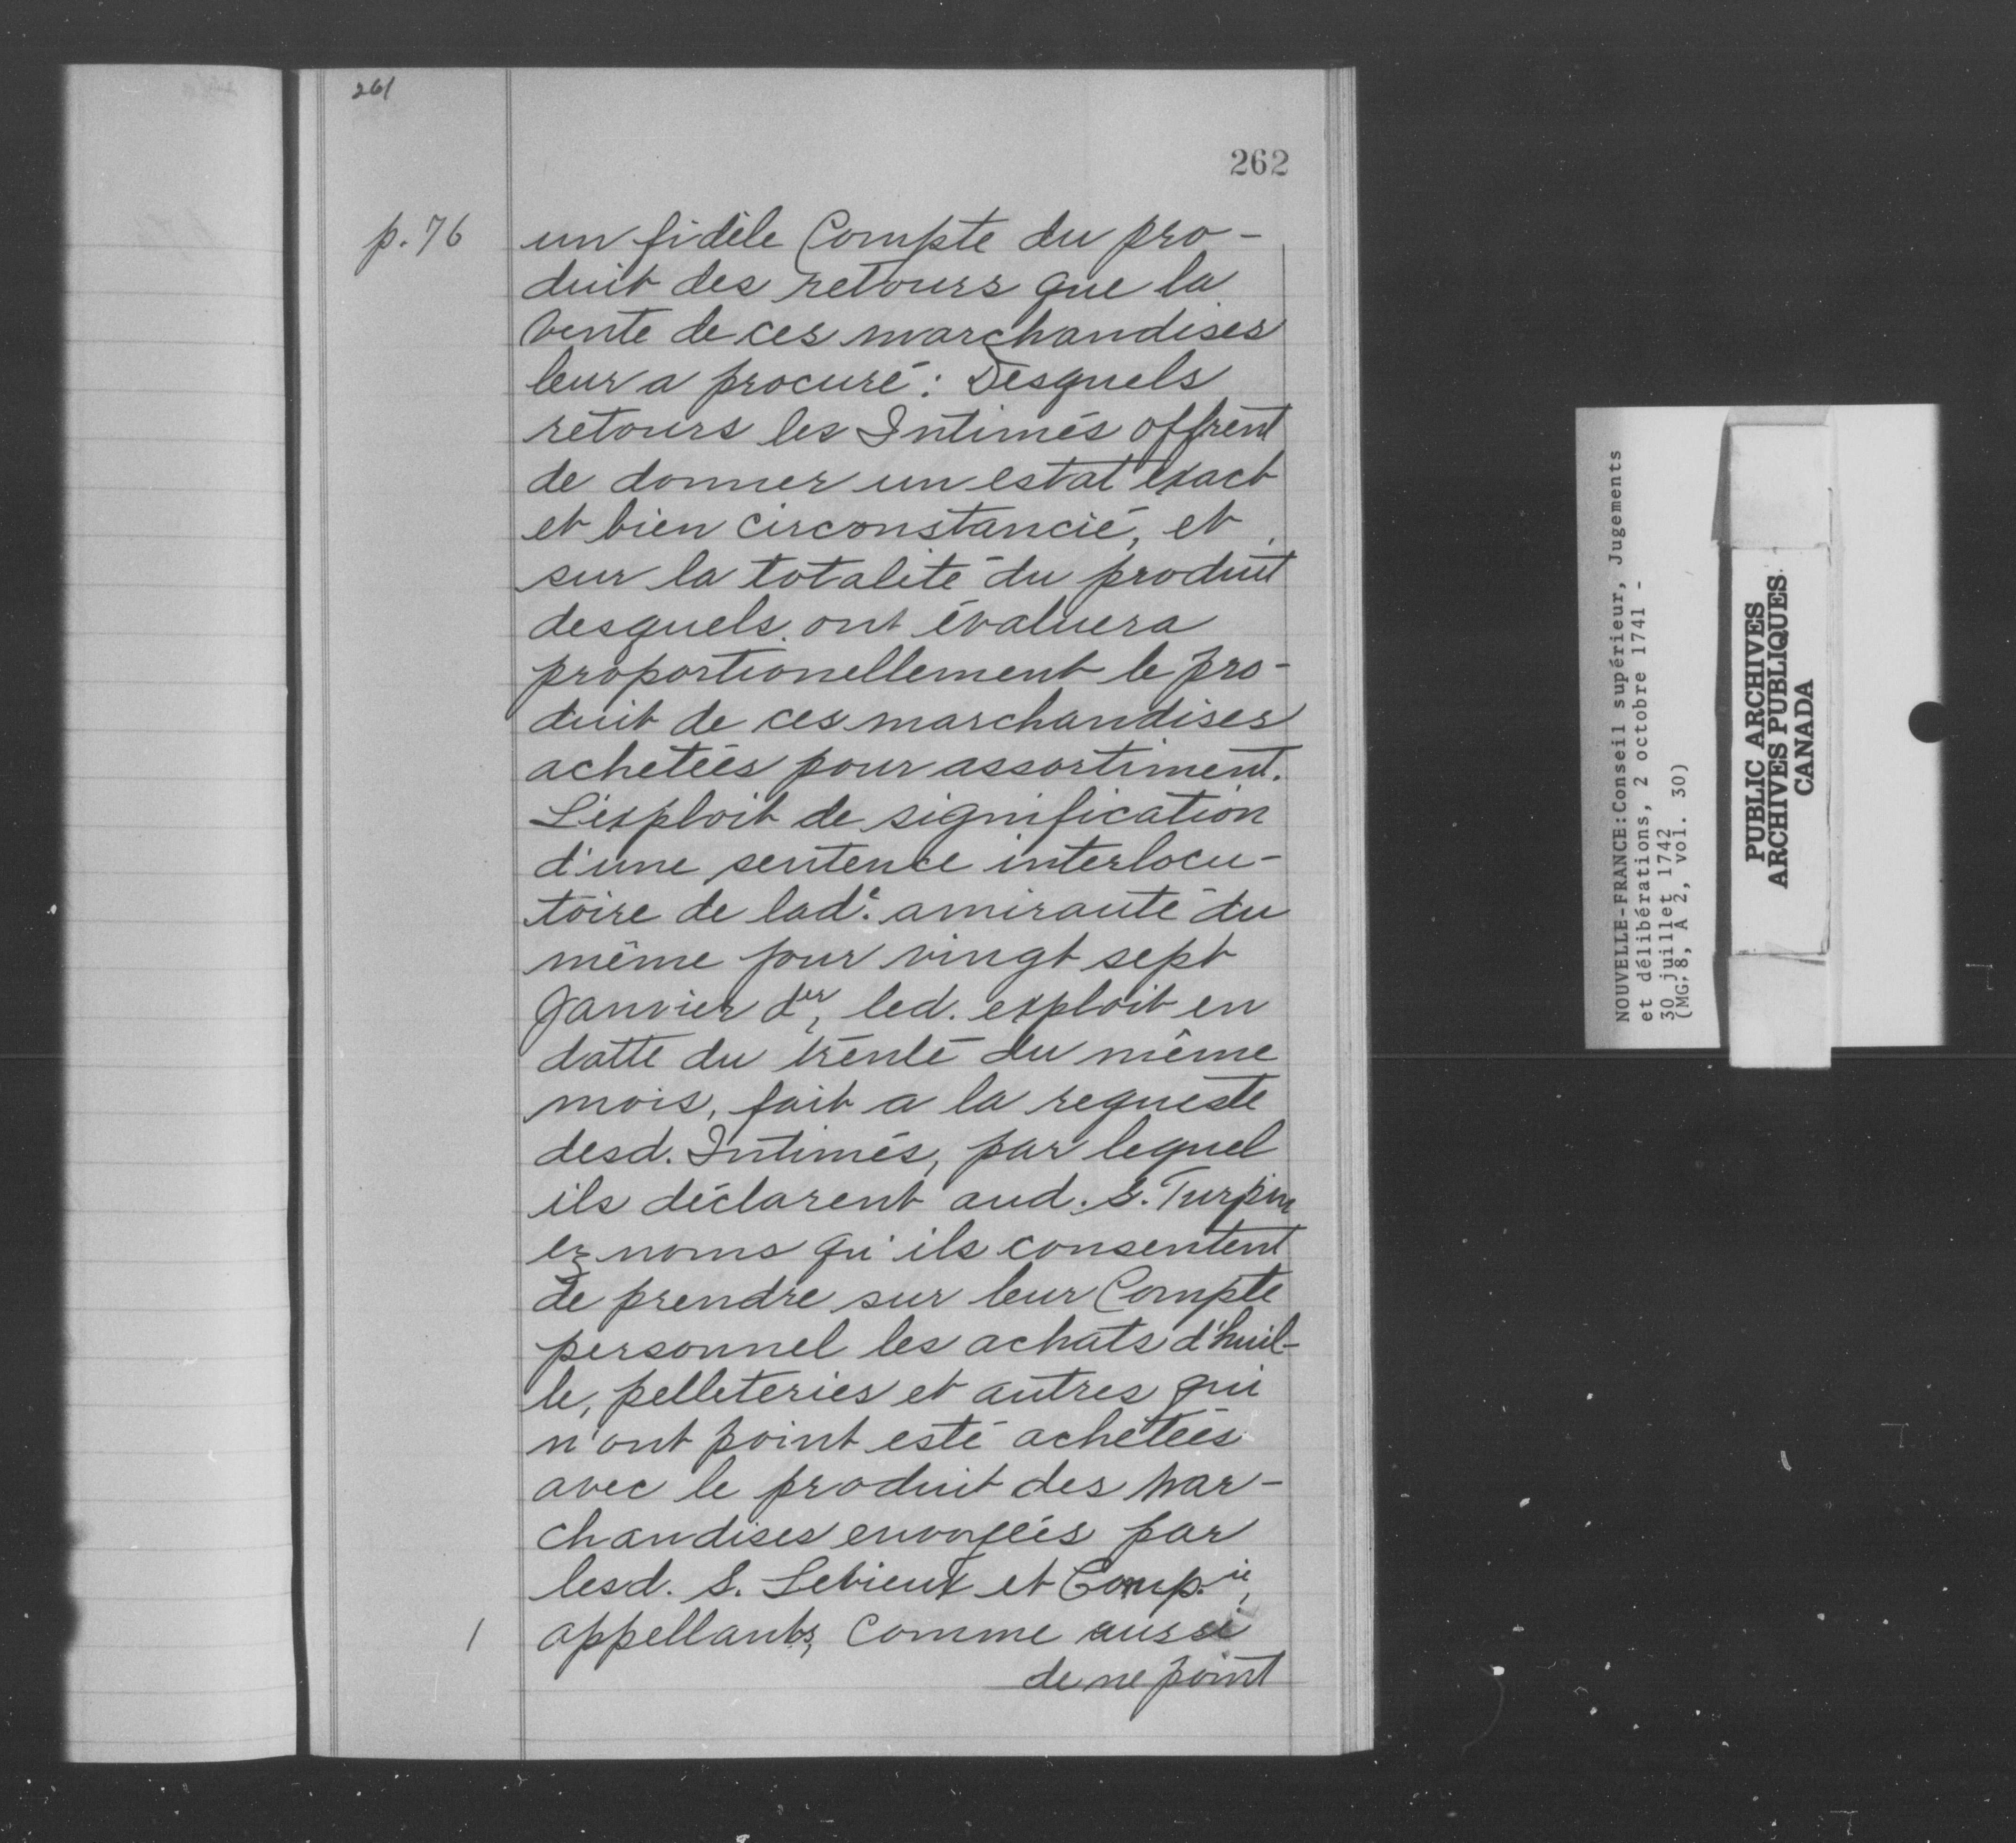 261
262
p. 76
un fidèle Compte du pro-
duit des retours que la
vente de ces marchandises
leur a procuré: Desquels
retours les Intimés offrent
de donner un estat exact
et bien circonstancié, et
sur la totalité du produit
desquels ont évaluera
proportionellement le pro-
duit de ces marchandises
achetées pour assortiment.
L'exploit de signification
d'une sentence interlocu-
toire de lad.e amirauté du
même jour vingt sept
Janvier der, led. exploit en
datte du trente du même
mois, fait a la requeste
desd. Intimés, par lequel
ils déclarent aud. S. Turpin
ez noms qu'ils consentent
de prendre sur leur Compte
personnel les achats d'huil-
le, pelleteries et autres qui
n'ont point esté achetées
avec le produit des Mar-
chandises envoyées par
lesd. S. Levieux et Comp.ie,
/ appellants, Comme aussi
de ne point
NOUVELLE-FRANCE:Conseil supérieur, Jugements
et délibérations, 2 octobre 1741 -
30 juillet 1742
(MG 8, A 2, vol. 30)
PUBLIC ARCHIVES
ARCHIVES PUBLIQUES
CANADA